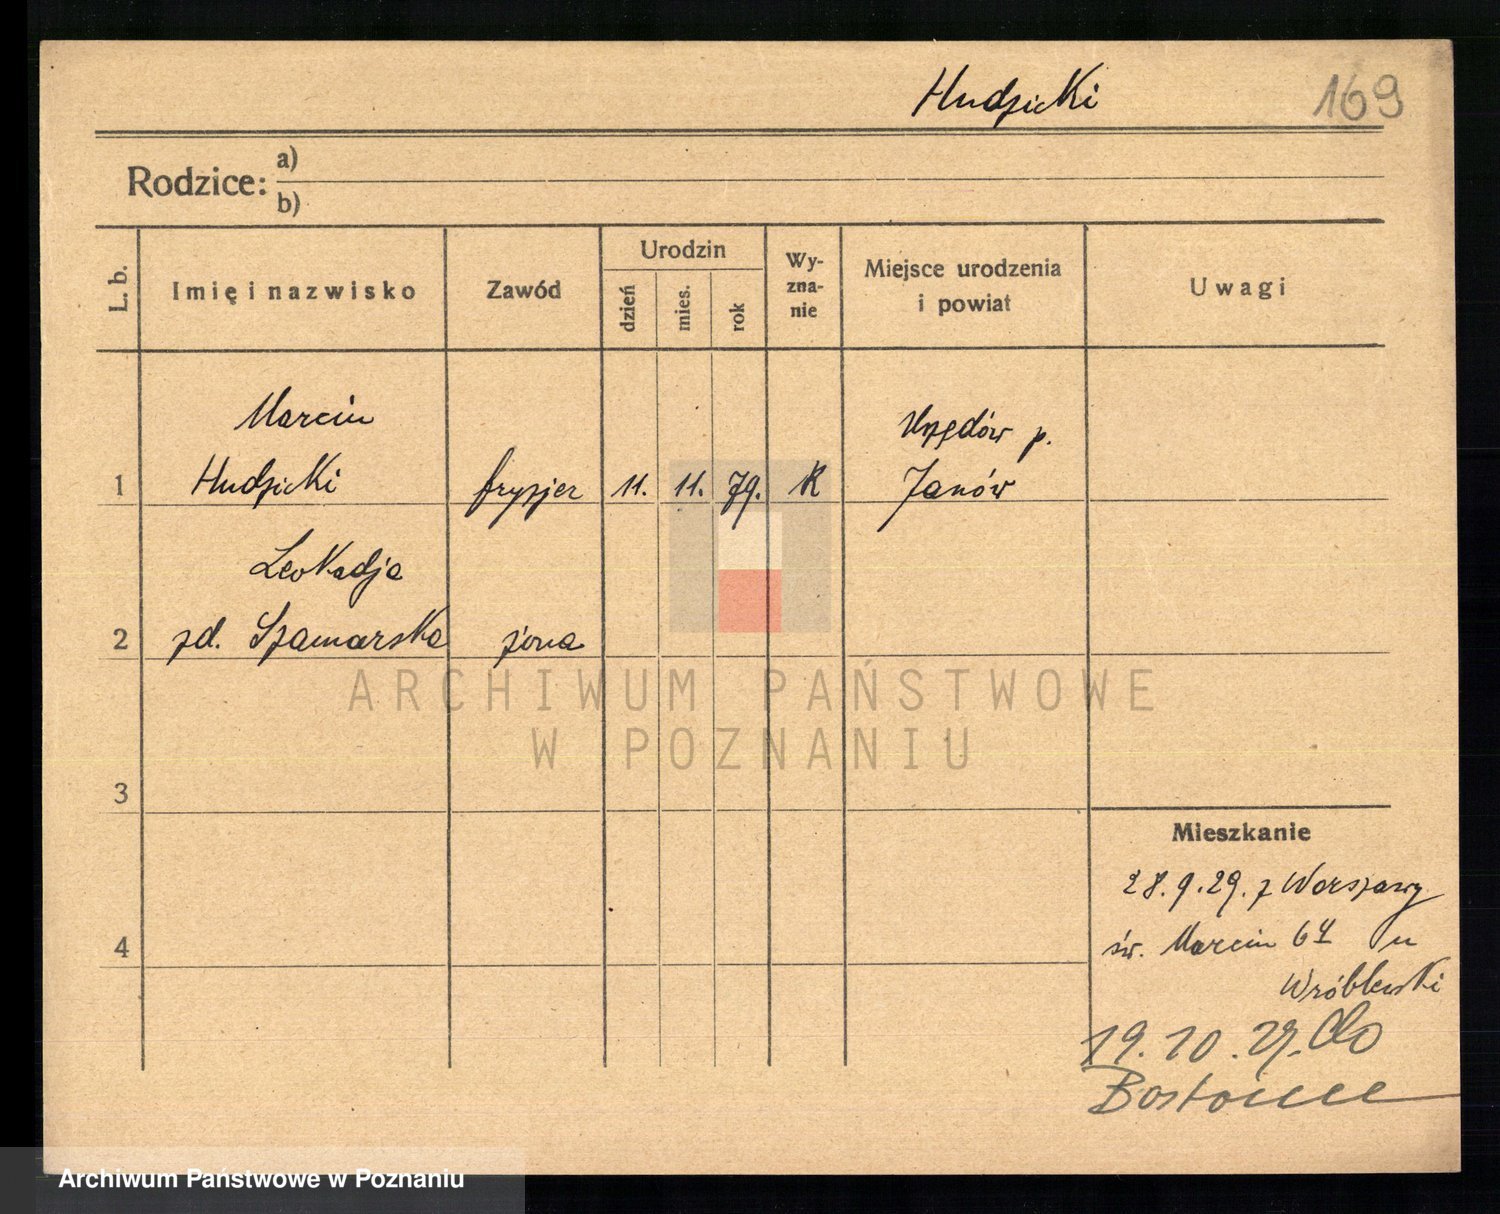 Hudzicki 169
Rodzice: a)
b)
L. b. Imię i nazwisko Zawód Urodzin dzień mies. rok Wy-zna-nie Miejsce urodzenia i powiat Uwagi
Marcin Urzędów p.
1 Hudzicki fryzjer 11. 11. 79. R Janów
Leokadja
2 zd. Szamarska żona
ARCHIWUM PAŃSTWOWE
W POZNANIU
3
Mieszkanie
28.9.29. z Warszawy
4 św. Marcin 64 u
Wróblewski
19.10.29. do
Archiwum Państwowe w Poznaniu